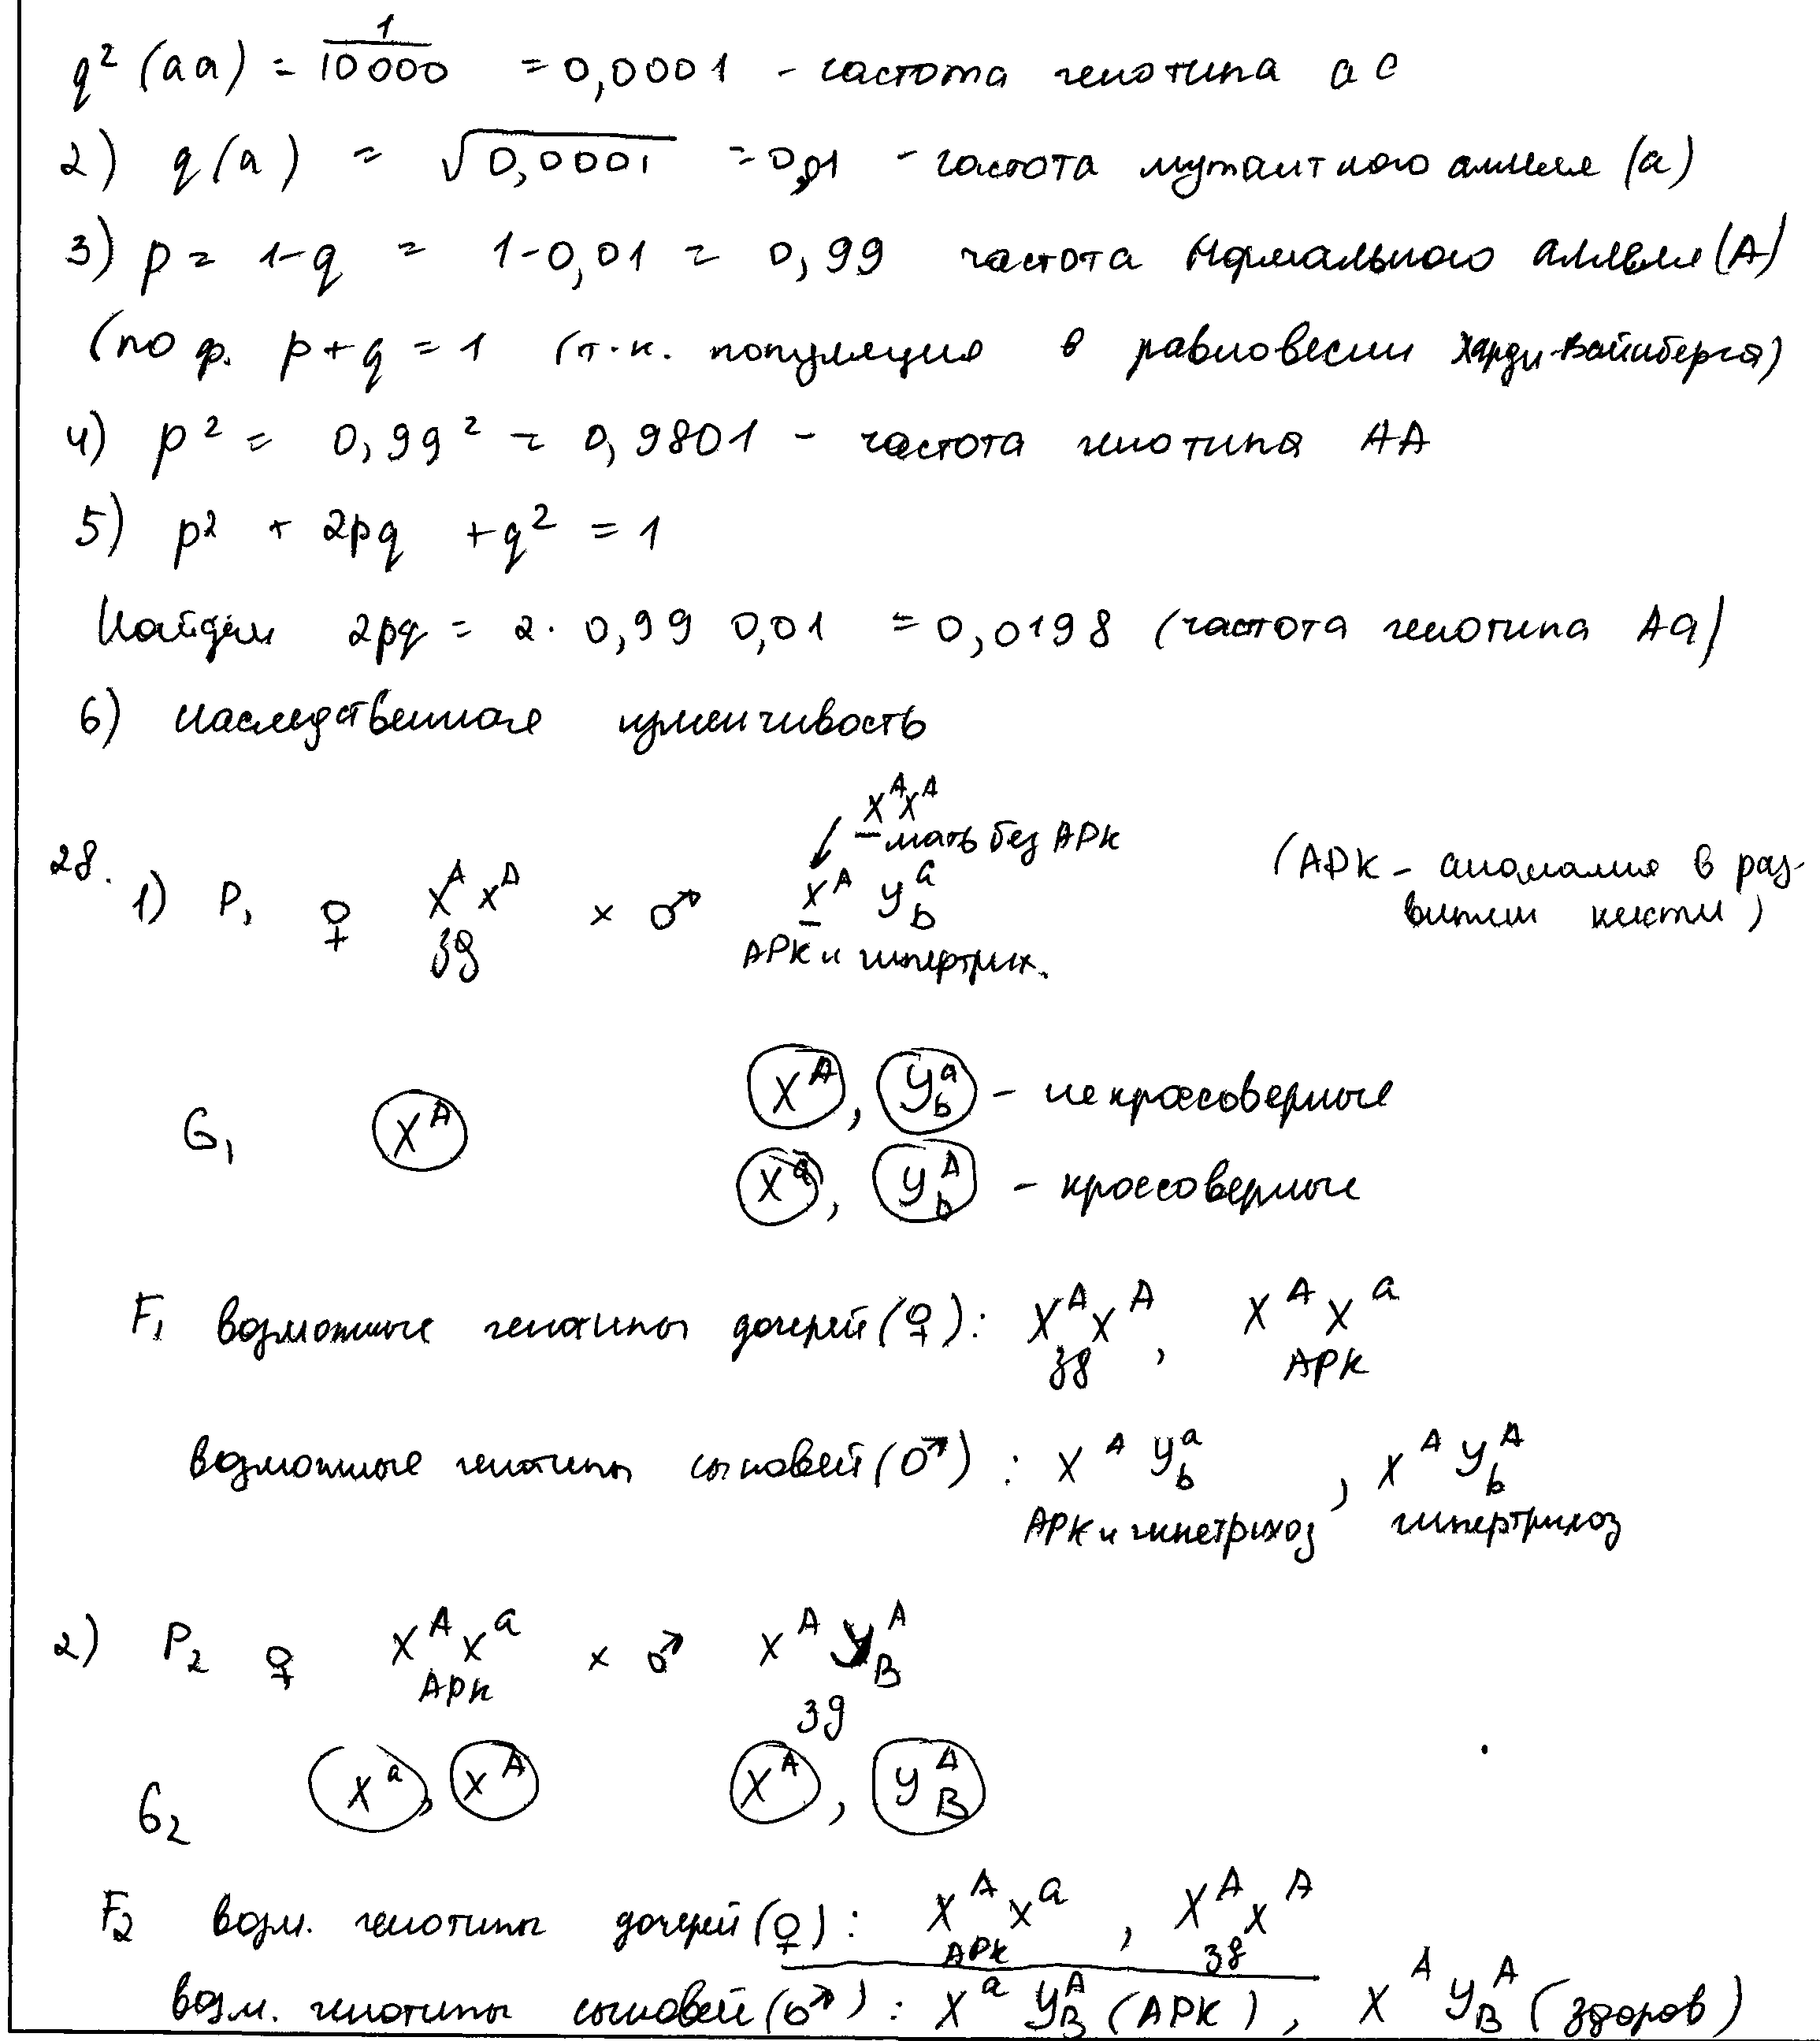 q² (aa) = 1/10000 = 0,0001 - частота генотипа aa
2) q(a) = √0,0001 = 0,01 - частота мутантного аллеля (a)
3) p = 1-q = 1-0,01 = 0,99 частота нормального аллеля (A)
(по ф. p+q = 1 (т.к. популяция в равновесии Харди-Вайнберга)
4) p² = 0,99² = 0,9801 - частота генотипа AA
5) p² + 2pq + q² = 1
Найдем 2pq = 2 · 0,99 0,01 = 0,0198 (частота генотипа Aa)
6) наследственная изменчивость
X^A X^A
- мать без АРК
28. 1) P₁ ♀ X^A X^A × ♂ X^A Y^a_b (АРК - аномалия в раз-
зд АРК и гипертрих. витии кисти)
G₁ X^A X^A, Y^a_b - некроссоверные
X^a, Y^A_b - кроссоверные
F₁ возможные генотипы дочерей (♀): X^A X^A, X^A X^a
зд АРК
возможные генотипы сыновей (♂): X^A Y^a_b, X^A Y^A_b
АРК и гипетрихоз гипертрихоз
2) P₂ ♀ X^A X^a × ♂ X^A Y^A_B
АРК зд
G₂ X^a, X^A X^A, Y^A_B
F₂ возм. генотипы дочерей (♀): X^A X^a, X^A X^A
АРК зд
возм. генотипы сыновей (♂): X^a Y^A_B (АРК), X^A Y^A_B (здоров)